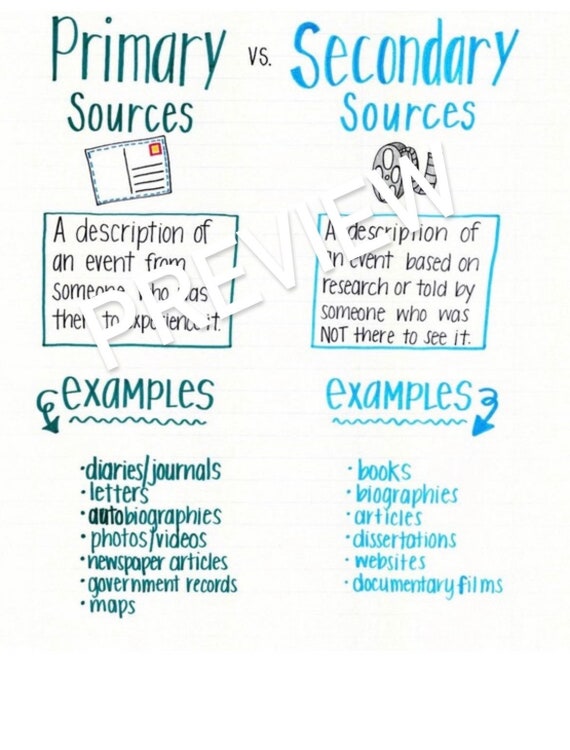 Primary vs. Secondary
Sources
Sources
A description of
an event from
someone who was
there to experience it.
EXAMPLES
•diaries/journals
•letters
•autobiographies
•photos/videos
•newspaper articles
•government records
•maps
A description of
an event based on
research or told by
someone who was
NOT there to see it.
EXAMPLES
•books
•biographies
•articles
•dissertations
•websites
•documentary films
PREVIEW